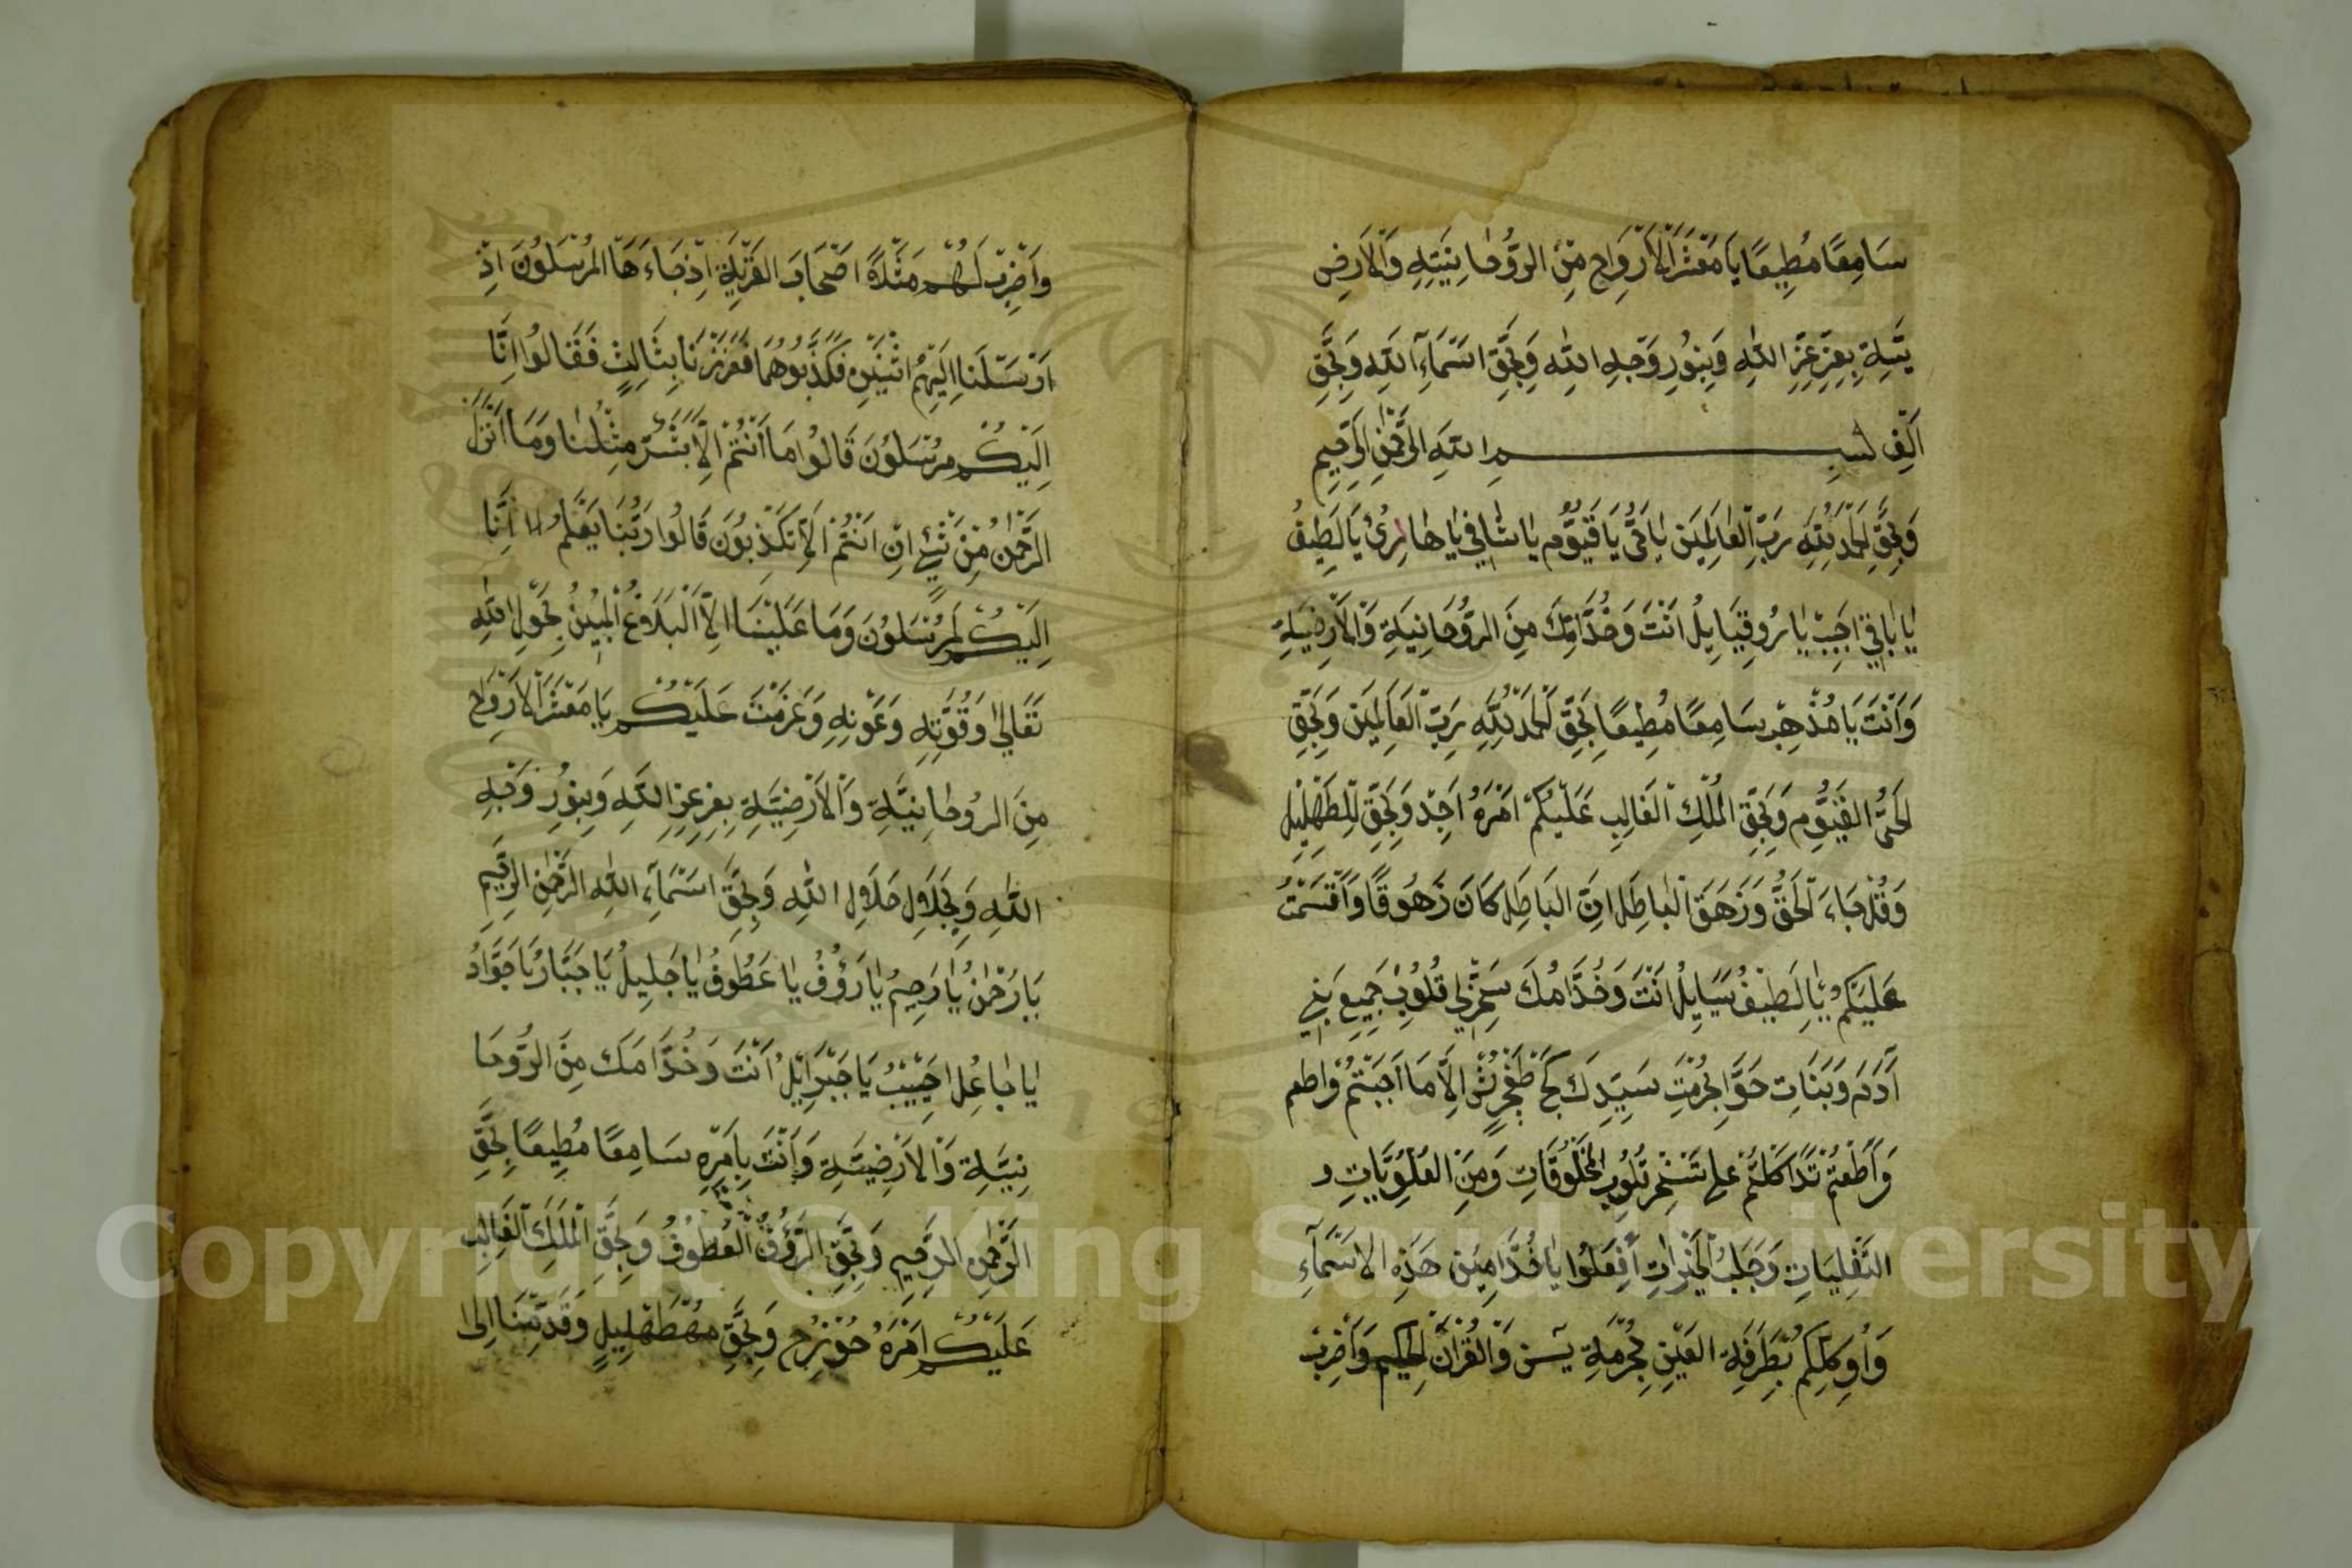 سَامِعًا مُطِيعًا يَا مَعْشَرَ الْاَرْوَاحِ مِنَ الرَّوُحَانِيَتِهِ وَالْاَرضِ
يَّتِةِ بِعِزِّ عِزِّ اللهِ وَبِنُورِ وَجْهِ اللهِ وَبِحَقِّ اسْمَاءِ اللهِ وَبِحَقِّ
اَلِفِ لبسم الله الرحمن الرحيم
وَبِحَقِّ لحَمْدُ لِلّٰهِ رَبِّ الْعَالَمِينَ يَا حَىُّ يَا قَيُّومُ يَا شَافِي يَا يَا لَطِيفُ
يَا بَاقِي اَجِبْ يَا رُوقِيَايِلُ اَنْتَ وَخُدَّامِكَ مِنَ الرَّوُحَانِيَةِ وَالْاَرْضِيَةِ
وَاَنْتَ يَا مُذْهِبْ سَامِعًا مُطِيعًا بِحَقِّ لحَمْدُ لِلّٰهِ رَبِّ الْعَالَمِينَ وَبِحَقِّ
الحَىُّ الْقَيُّومِ وَبِحَقِّ الْمُلِكِ الْغَالِبِ عَلَيْكُمْ اَمْرَهُ اَجِدْ وَبِحَقِّ لِلطَهْلِيلِ
وَقُلْ جَاءَ الْحَقُّ وَزَهَقَ الْبَاطِلَ اِنَّ الْبَاطِلَ كَانَ زَهُوقًا وَاَقْسَمْتُ
عَلَيْكُمْ يَا لَطِيفُيَايِلُ اَنْتَ وَخُدَّامُكَ سَخِّرْلِي قُلُوبَ جَمِيعِ بَنِي
آدَمَ وَبَنَاتِ حَوَّا بِحُرْمَتِ سَيِّدِكَ اِلَّا مَا اَجَبْتُمْ وَاطعم
وَاَطَعْتُمْ عَلَى تَسْخِيرِ قُلُوبِ الْمَخْلُوقَاتِ وَمِنَ الْعُلْوِيَّاتِ و
السِّفْلِيَاتِ وَجَلْبُ الْخَيْرَاتِ اَفْعَلُوا يَا خُدَّامِينَ هَذِهِ الْاَسْمَاءِ
وَاُوكِلُكُمْ بِطَرْفَةِ الْعَيْنِ بِحُرْمَةِ يٓسٓ وَالْقُرْآنِ الْحَكِيمِ وَاَضْرِبْ
وَاَضْرِبْ لَهُمْ مَثَلًا اَصْحَابَ الْقَرْيَةِ اِذْ جَاءَهَا الْمُرْسَلُونَ اِذْ
اَرْسَلْنَا اِلَيْهِمُ اثْنَيْنِ فَكَذَّبُوهُمَا فَعَزَّزْنَا بِثَالِثٍ فَقَالُوا اِنَّا
اِلَيْكُمْ مُرْسَلُونَ قَالُوا مَا اَنْتُمْ اِلَّا بَشَرٌ مِثْلُنَا وَمَا اَنْزَلَ
الرَّحْمٰنُ مِنْ شَيْءٍ اِنْ اَنْتُمْ اِلَّا تَكْذِبُونَ قَالُوا رَبُّنَا يَعْلَمُ اِنَّا
اِلَيْكُمْ لَمُرْسَلُونَ وَمَا عَلَيْنَا اِلَّا الْبَلَاغُ الْمُبِينُ بِحَوْلِ اللهِ
تَعَالَى وَقُوَّتِهِ وَعَوْنِهِ وَعَزَمْتَ عَلَيْكُمْ يَا مَعْشَرَ الْاَرْوَاحِ
مِنَ الرُوحَانِيَّةِ وَالْاَرْضِيَّةِ بِعِزِ عِزِ اللهِ وَبِنُورِ وَجْهِ
اللهِ وَبِجَلَالِ جَلَالِ اللهِ وَبِحَقِّ اسْمَاءِ اللهِ الرَّحْمٰنِ الرَّحِيمِ
يَا رَحْمٰنُ يَا رَحِيمُ يَا رَؤُفُ يَا عَطُوفُ يَا جَلِيلُ يَا جَبَّارُ يَا جَوَّادُ
يَا جَاعِلُ اَجِيبْ يَا جَبْرَائِلُ اَنْتَ وَخُدَّامَكَ مِنَ الرُّوحَا
نِيَّةِ وَالْاَرْضِيَّةِ وَاَنْتَ يَا مُرَّه سَامِعًا مُطِيعًا بِحَقِّ
الرَّحْمٰنِ الرَّحِيمِ وَبِحَقِّ الرَّؤُفُ الْعُطُوفُ وَبِحَقِّ الْمَلِكَ الْغَالِبِ
عَلَيْكُمْ اَمْرَهُ وَبِحَقِّ مَهْطَهْلِيلٍ وَقَدِّمْنَا اِلَى
Copyright © King Saud University
1957